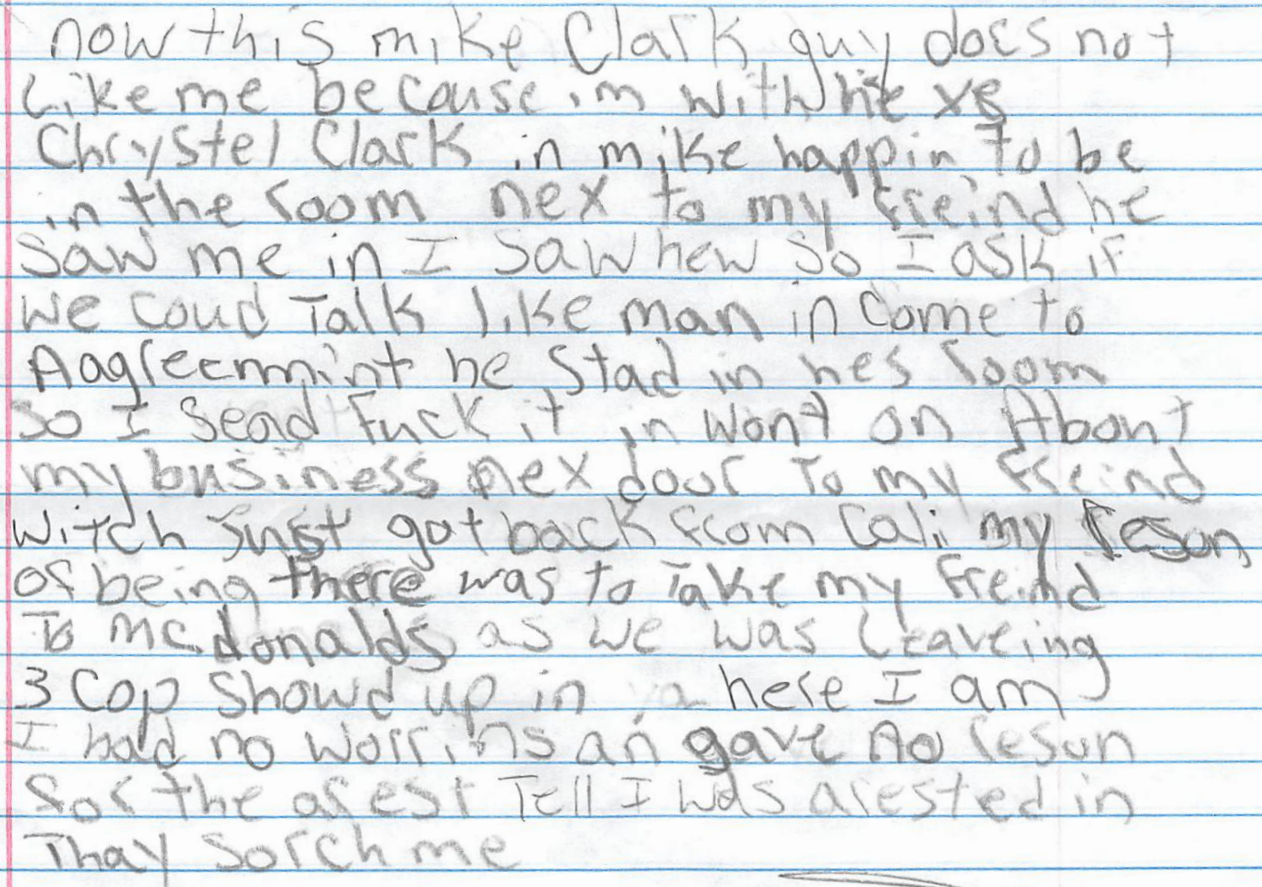 now this mike Clark guy does not
Like me because im with he xs
Chrystel Clark in mike happin to be
in the room nex to my freind he
saw me in I saw hew so I ask if
we coud Talk like man in come to
Aagreemmint he stad in hes room
so I sead fuck it in wont on About
my business nex door To my freind
witch just got back from Cali my reson
of being there was to Take my freind
To mcdonalds as we was Leaveing
3 Cop showd up in here I am
I had no worrins an gave no resun
for the arest Tell I was arested in
Thay sorch me